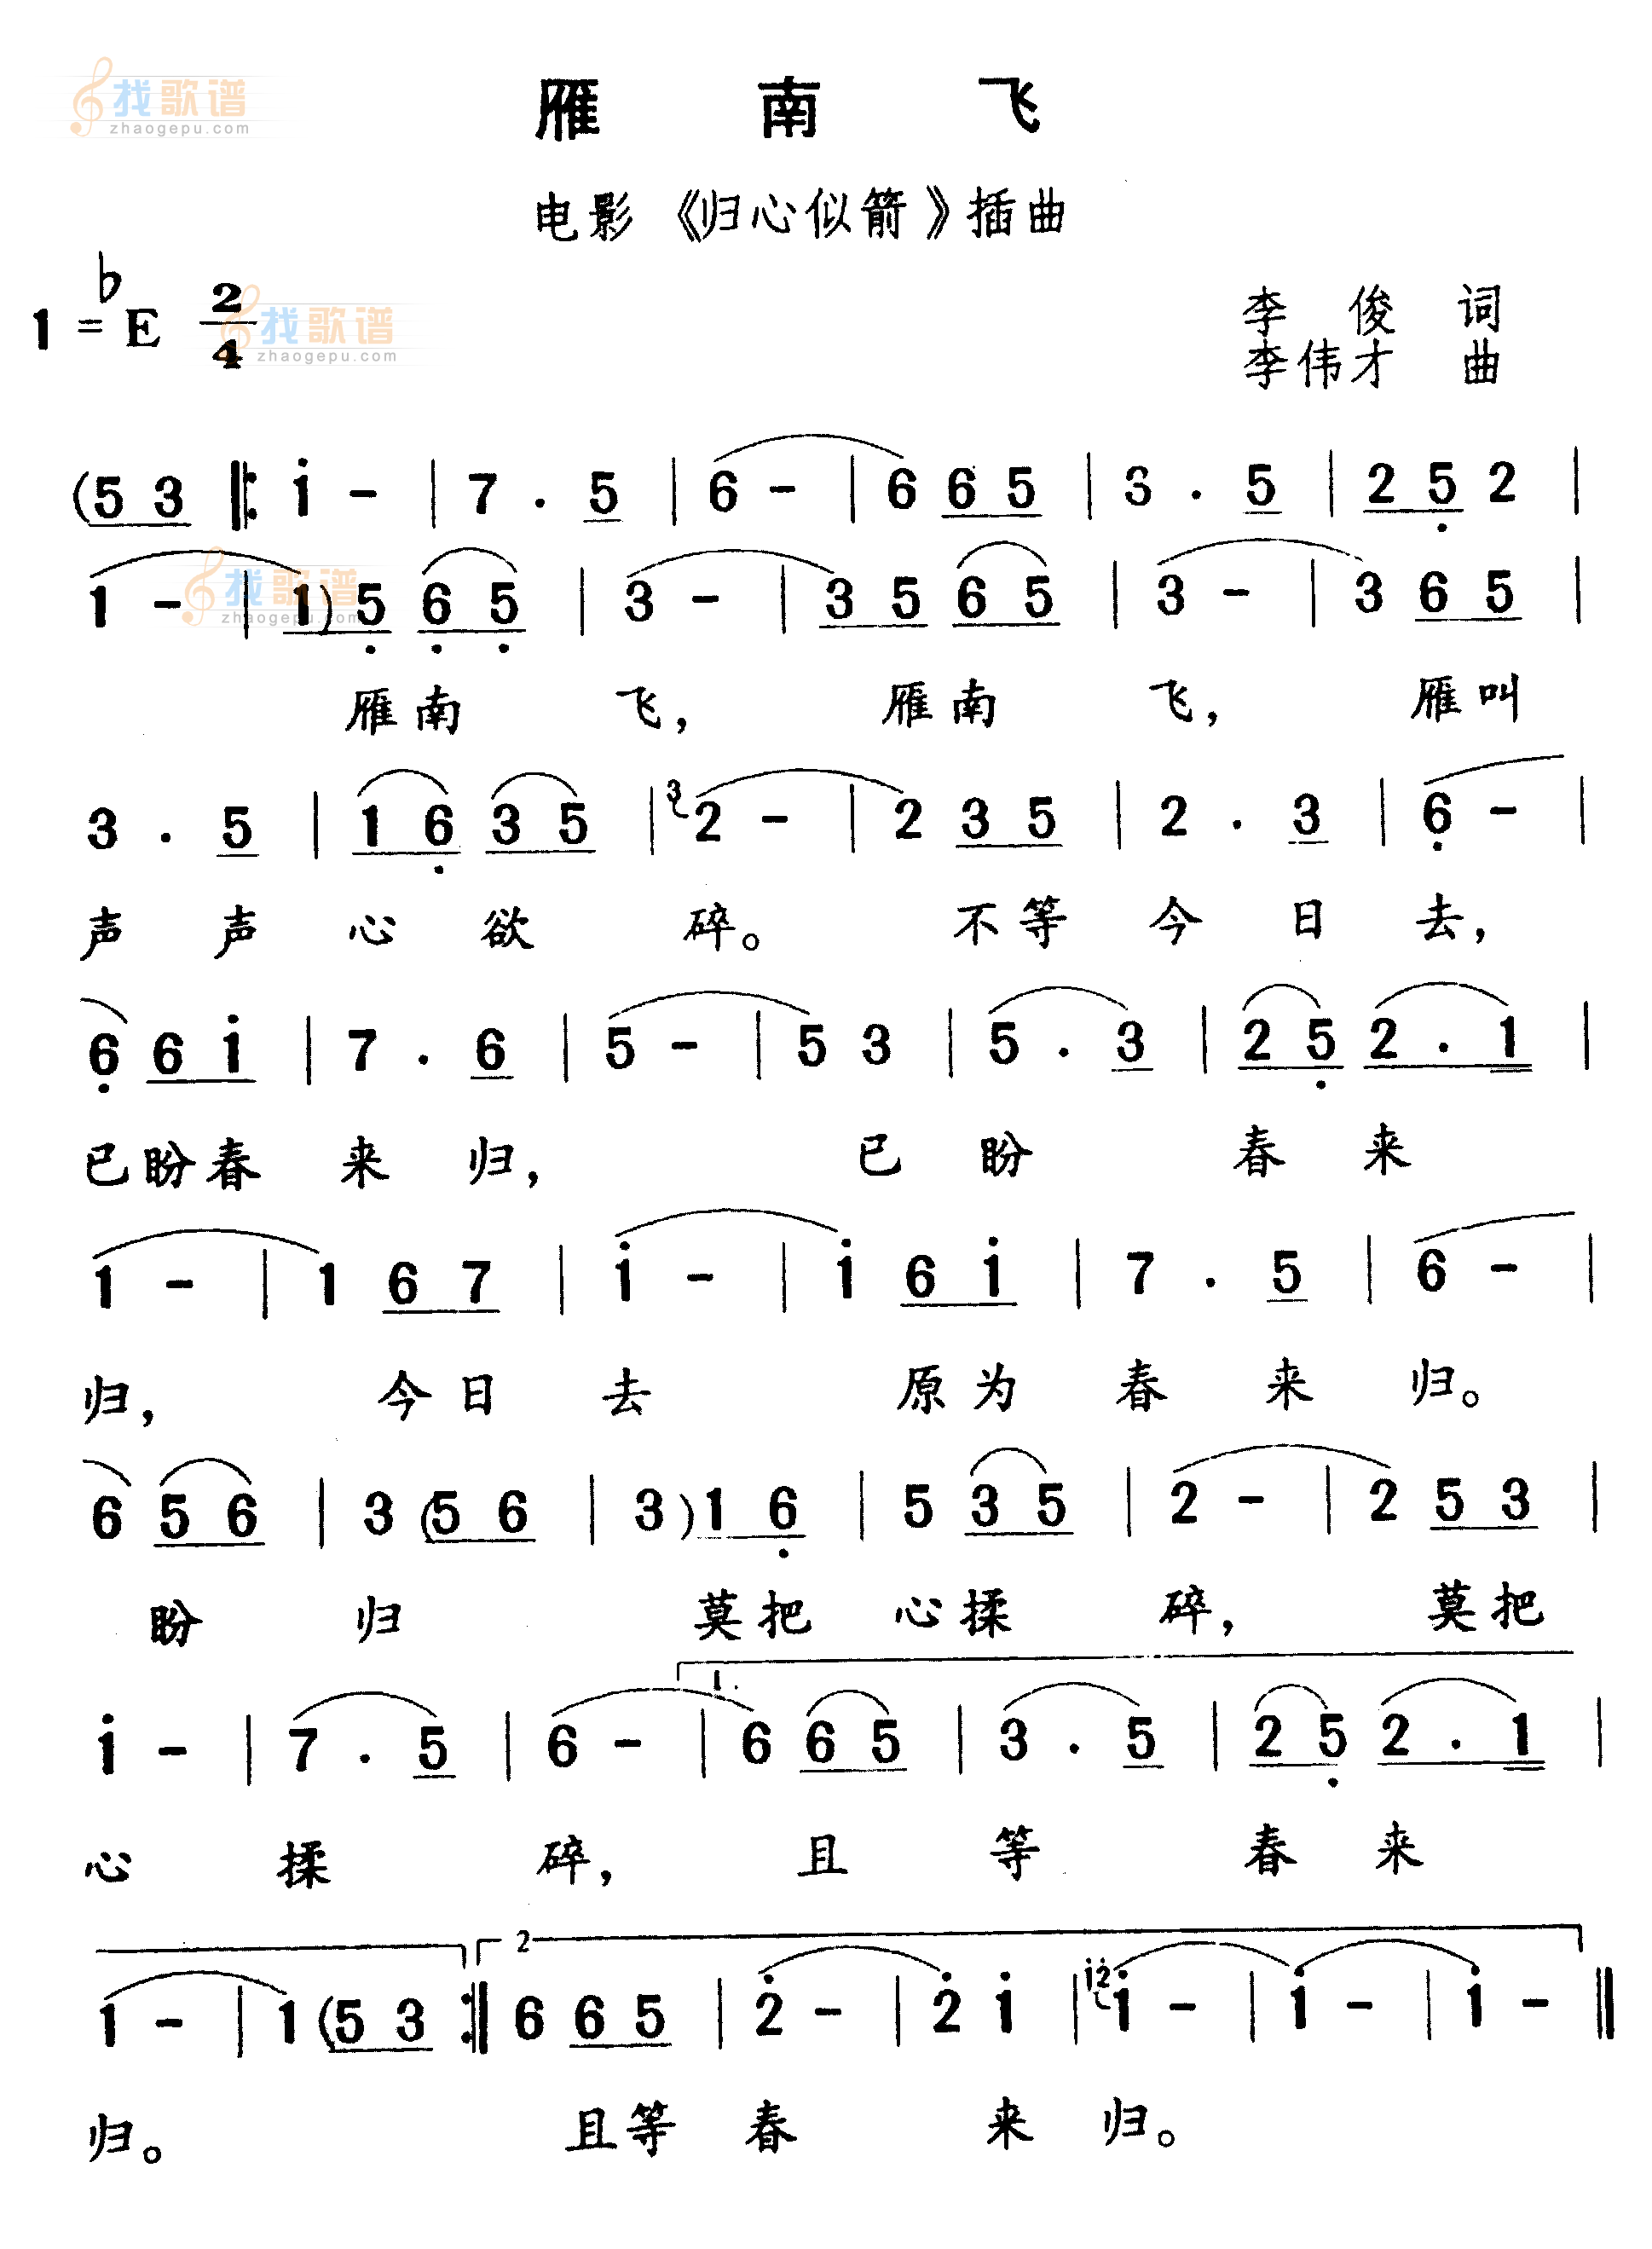 找歌谱
zhaogepu.com
雁 南 飞
电影《归心似箭》插曲
1 = ♭E 2/4
找歌谱
zhaogepu.com
李 俊 词
李伟才 曲
(5 3 ‖: i - | 7 . 5 | 6 - | 6 6 5 | 3 . 5 | 2 5 2 |
1 - | 1) 5 6 5 | 3 - | 3 5 6 5 | 3 - | 3 6 5 |
找歌谱
zhaogepu.com
雁南 飞, 雁南 飞, 雁叫
3 . 5 | 1 6 3 5 | 3 2 - | 2 3 5 | 2 . 3 | 6 - |
声 声 心 欲 碎。 不等 今 日 去,
6 6 i | 7 . 6 | 5 - | 5 3 | 5 . 3 | 2 5 2 . 1 |
已盼春 来 归, 已 盼 春 来
1 - | 1 6 7 | i - | i 6 i | 7 . 5 | 6 - |
归, 今日 去 原为 春 来 归。
6 5 6 | 3 (5 6 | 3 ) 1 6 | 5 3 5 | 2 - | 2 5 3 |
盼 归 莫把 心揉 碎, 莫把
1.
i - | 7 . 5 | 6 - | 6 6 5 | 3 . 5 | 2 5 2 . 1 |
心 揉 碎, 且 等 春 来
2
1 - | 1 (5 3 :‖ 6 6 5 | 2 - | 2 i | i 2 i - | i - | i - ‖
归。 且等 春 来 归。